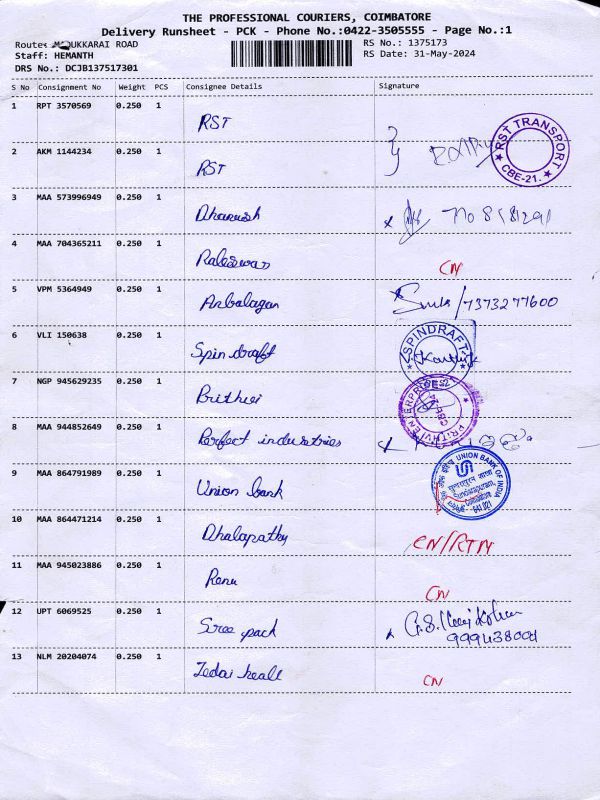 THE PROFESSIONAL COURIERS, COIMBATORE
Delivery Runsheet - PCK - Phone No.:0422-3505555 - Page No.:1
Route: UKKARAI ROAD
RS No.: 1375173
Staff: HEMANTH
RS Date: 31-May-2024
DRS No.: DCJB137517301
S No Consignment No Weight PCS Consignee Details Signature
1 RPT 3570569 0.250 1 RST
RST TRANSPORT CBE-21.
2 AKM 1144234 0.250 1 RST
3 MAA 573996949 0.250 1 Dhanush
4 MAA 704365211 0.250 1 CN
5 VPM 5364949 0.250 1 Anbalagan /7373277600
6 VLI 150638 0.250 1 Spin draft SPINDRAFT
7 NGP 945629235 0.250 1 Prithvi
8 MAA 944852649 0.250 1 Perfect industries
9 MAA 864791989 0.250 1 Union bank UNION BANK OF INDIA
10 MAA 864471214 0.250 1 Dhalapathy CN/RTN
11 MAA 945023886 0.250 1 Renu CN
12 UPT 6069525 0.250 1 Sree pack
13 NLM 20204074 0.250 1 CN